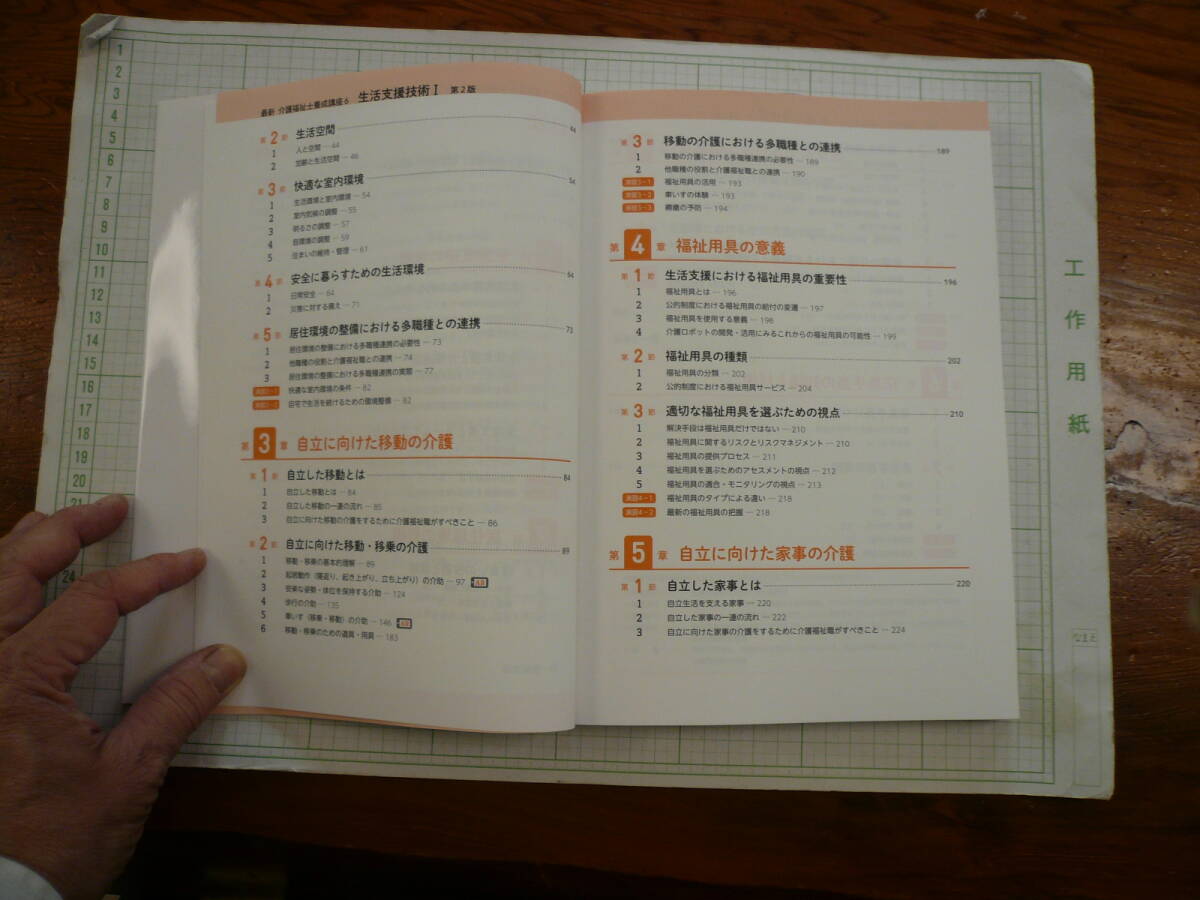 最新 介護福祉士養成講座6 生活支援技術Ⅰ 第2版
第2節 生活空間 44
1 人と空間 … 44
2 加齢と生活空間 … 46
第3節 快適な室内環境 54
1 生活環境と室内環境 … 54
2 室内気候の調整 … 55
3 明るさの調整 … 57
4 音環境の調整 … 59
5 住まいの維持・管理 … 61
第4節 安全に暮らすための生活環境 64
1 日常安全 … 64
2 災害に対する備え … 71
第5節 居住環境の整備における多職種との連携 73
1 居住環境の整備における多職種連携の必要性 … 73
2 他職種の役割と介護福祉職との連携 … 74
3 居住環境の整備における多職種連携の実際 … 77
演習2-1 快適な室内環境の条件 … 82
演習2-2 自宅で生活を続けるための環境整備 … 82
第3章 自立に向けた移動の介護
第1節 自立した移動とは 84
1 自立した移動とは … 84
2 自立した移動の一連の流れ … 85
3 自立に向けた移動の介護をするために介護福祉職がすべきこと … 86
第2節 自立に向けた移動・移乗の介護 89
1 移動・移乗の基本的理解 … 89
2 起居動作（寝返り、起き上がり、立ち上がり）の介助 … 97 AR
3 安楽な姿勢・体位を保持する介助 … 124
4 歩行の介助 … 135
5 車いす（移乗・移動）の介助 … 146 AR
6 移動・移乗のための道具・用具 … 183
第3節 移動の介護における多職種との連携 189
1 移動の介護における多職種連携の必要性 … 189
2 他職種の役割と介護福祉職との連携 … 190
演習3-1 福祉用具の活用 … 193
演習3-2 車いすの体験 … 193
演習3-3 褥瘡の予防 … 194
第4章 福祉用具の意義
第1節 生活支援における福祉用具の重要性 196
1 福祉用具とは … 196
2 公的制度における福祉用具の給付の変遷 … 197
3 福祉用具を使用する意義 … 198
4 介護ロボットの開発・活用にみるこれからの福祉用具の可能性 … 199
第2節 福祉用具の種類 202
1 福祉用具の分類 … 202
2 公的制度における福祉用具サービス … 204
第3節 適切な福祉用具を選ぶための視点 210
1 解決手段は福祉用具だけではない … 210
2 福祉用具に関するリスクとリスクマネジメント … 210
3 福祉用具の提供プロセス … 211
4 福祉用具を選ぶためのアセスメントの視点 … 212
5 福祉用具の適合・モニタリングの視点 … 213
演習4-1 福祉用具のタイプによる違い … 218
演習4-2 最新の福祉用具の把握 … 218
第5章 自立に向けた家事の介護
第1節 自立した家事とは 220
1 自立生活を支える家事 … 220
2 自立した家事の一連の流れ … 222
3 自立に向けた家事の介護をするために介護福祉職がすべきこと … 224
1
2
3
4
5
6
7
8
9
10
11
12
13
14
15
16
17
18
19
20
21
24
工作用紙
なまえ